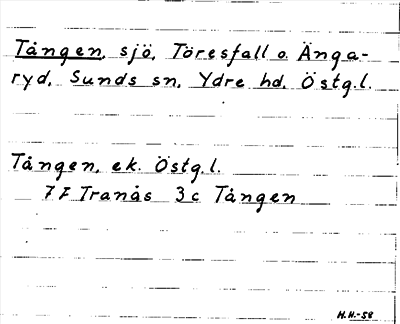 Tången, sjö, Töresfall o. Änga-
ryd, Sunds sn, Ydre hd, Östg.l.
Tången, ek. Östg.l.
7F Tranås 3c Tången
H.H.-58